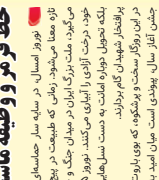 خط قرمز و وظیفه ما
نوروز امسال، در سایه سار حماسه‌ای
تازه معنا می‌شود. زمانی که طبیعت در
می‌گیرد، ملت بزرگ ایران در میدان جنگ و
خود، درخت آزادی را آبیاری می‌کنند. نوروز
و تحویل دوباره امانت به دست نسل‌های
پرافتخار شهیدان گام بردارند.
در این روزگار سخت و پرشکوه، که بوی باروت
جشن آغاز سال، پیوندی است میان امید